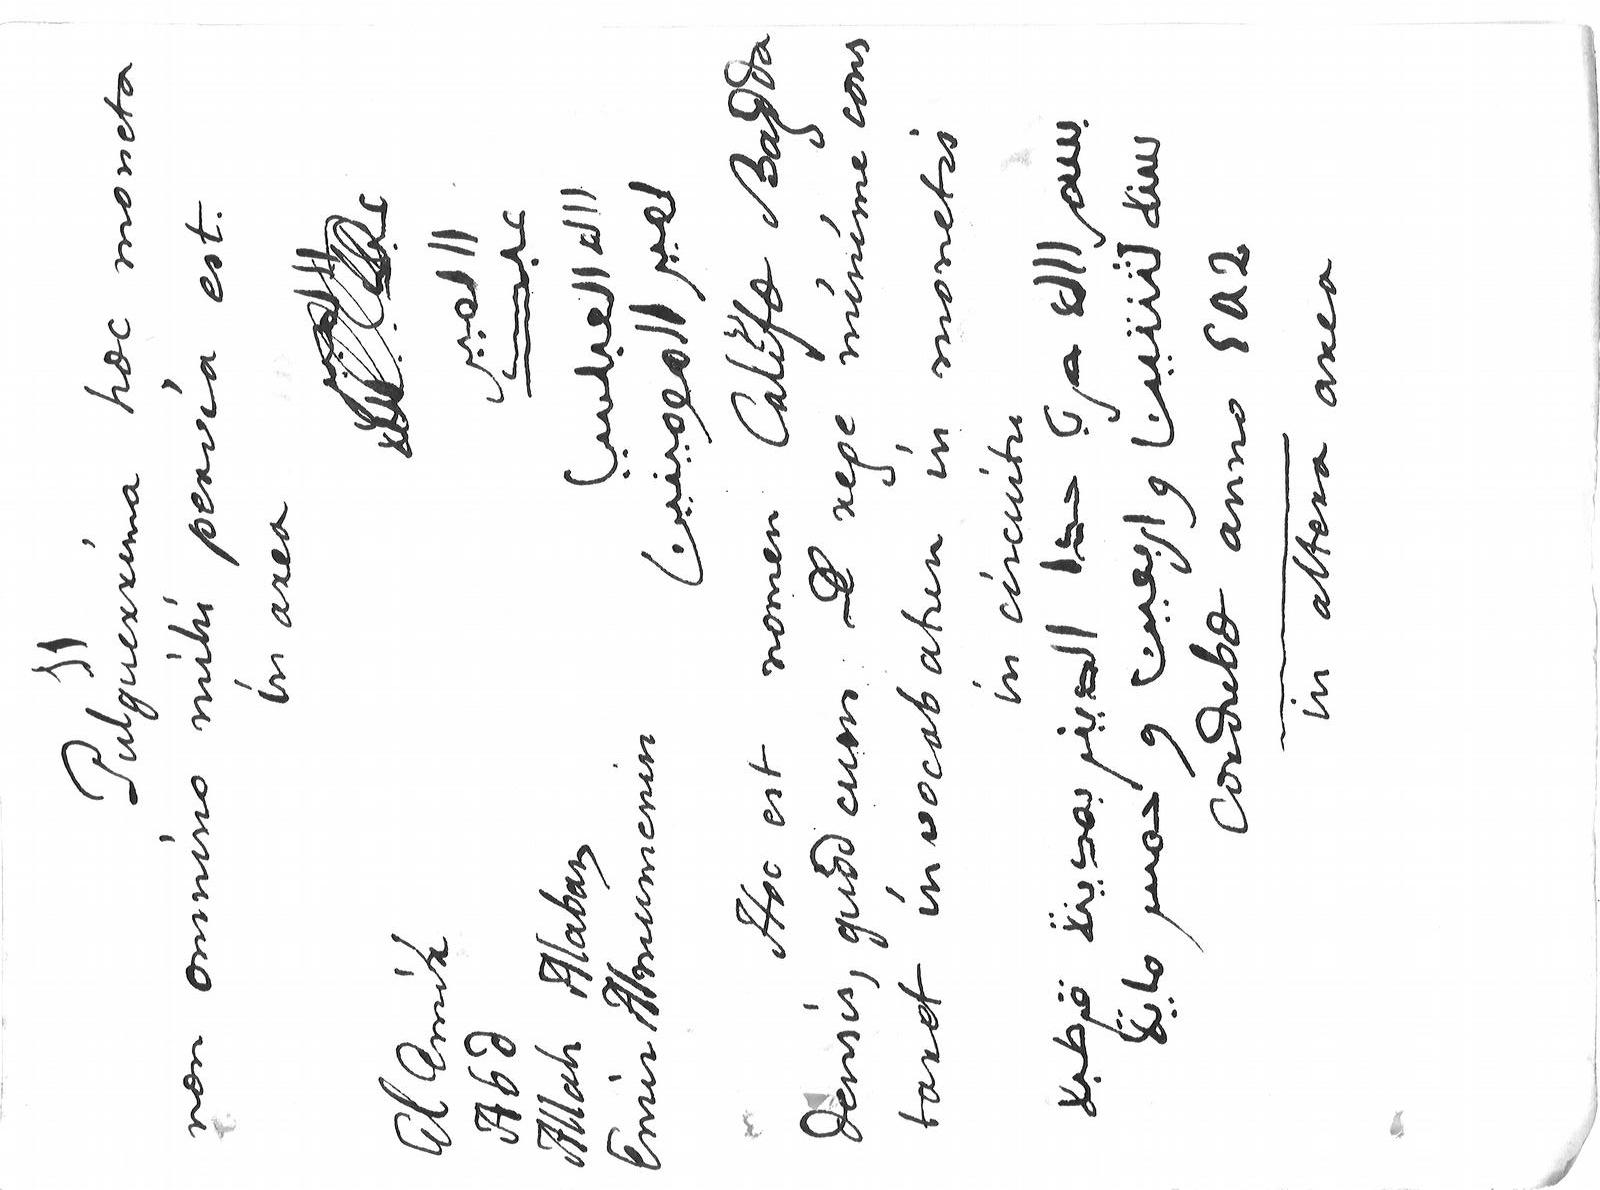 Pulguerrima hoc moneta
non omnino mihi pervia est.
in area
El Amir الامير
Abd عبد
Allah Alabas الله العباسي
Emir Almumenin امير المومنين
Hoc est nomen Califæ Bagda
densis, quod cum rege minime cons
taret invocabatur in monetis
in circuitu
بسم الله ضرب هذا الدينر بمدينة قرطبة
سنة اثنتين و اربعين و خمس ماية
Cordubæ anno 542
in altera area